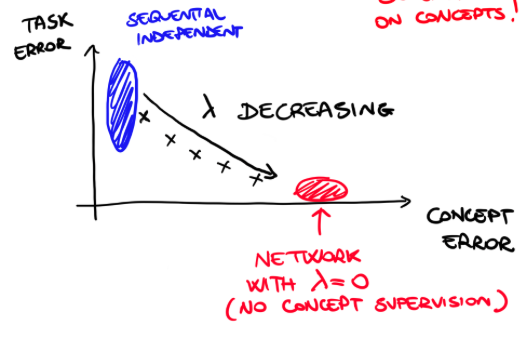 ON CONCEPTS!
TASK
ERROR
SEQUENTIAL
INDEPENDENT
λ DECREASING
CONCEPT
ERROR
NETWORK
WITH λ=0
(NO CONCEPT SUPERVISION)